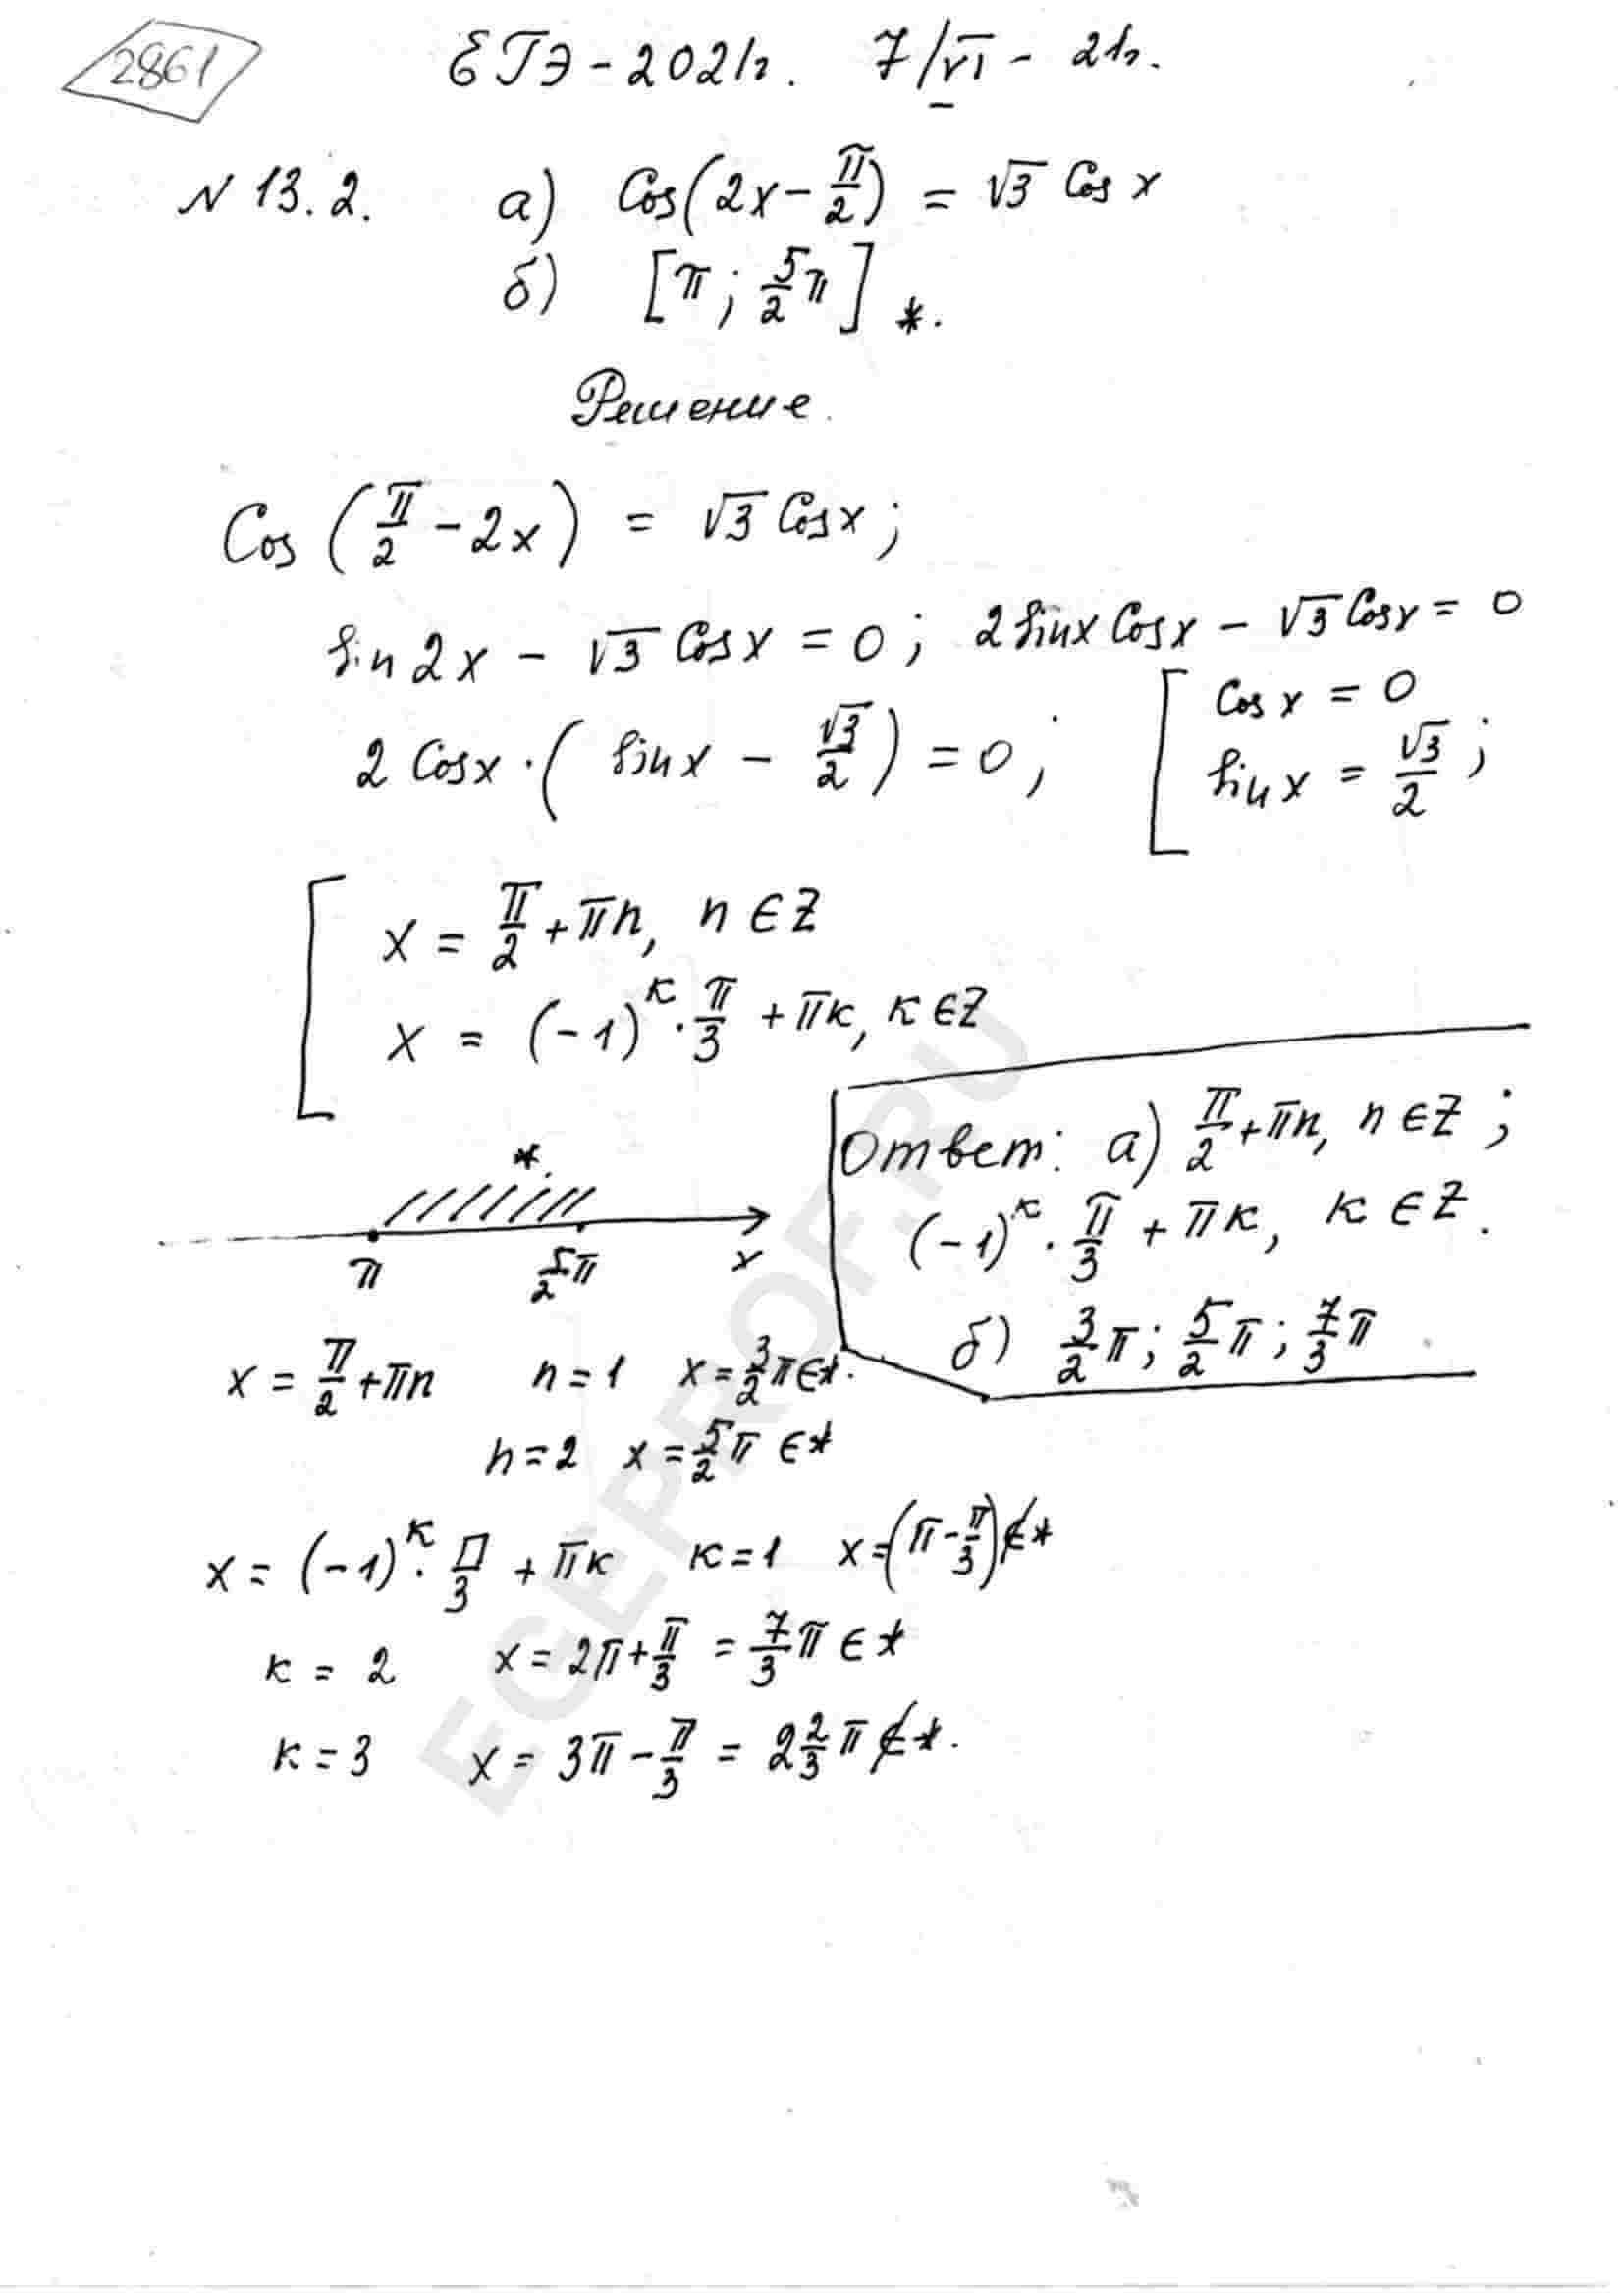 2861
ЕГЭ - 2021г. 7/VI - 21г.
N 13.2. а) Cos(2x - π/2) = √3 Cos x
б) [π; 5/2 π] *.
Решение.
Cos(π/2 - 2x) = √3 Cos x;
sin 2x - √3 Cos x = 0; 2 sin x Cos x - √3 Cos x = 0
2 Cos x · (sin x - √3/2) = 0; [ Cos x = 0
sin x = √3/2;
[ x = π/2 + πn, n ∈ Z
x = (-1)^к · π/3 + πк, к ∈ Z
Ответ: а) π/2 + πn, n ∈ Z;
(-1)^к · π/3 + πк, к ∈ Z.
б) 3/2 π; 5/2 π; 7/3 π
*.
π 5/2 π x
x = π/2 + πn n = 1 x = 3/2 π ∈ *.
n = 2 x = 5/2 π ∈ *
x = (-1)^к · π/3 + πк к = 1 x = (π - π/3) ∉ *
к = 2 x = 2π + π/3 = 7/3 π ∈ *
к = 3 x = 3π - π/3 = 2 2/3 π ∉ *.
EGEPROF.RU